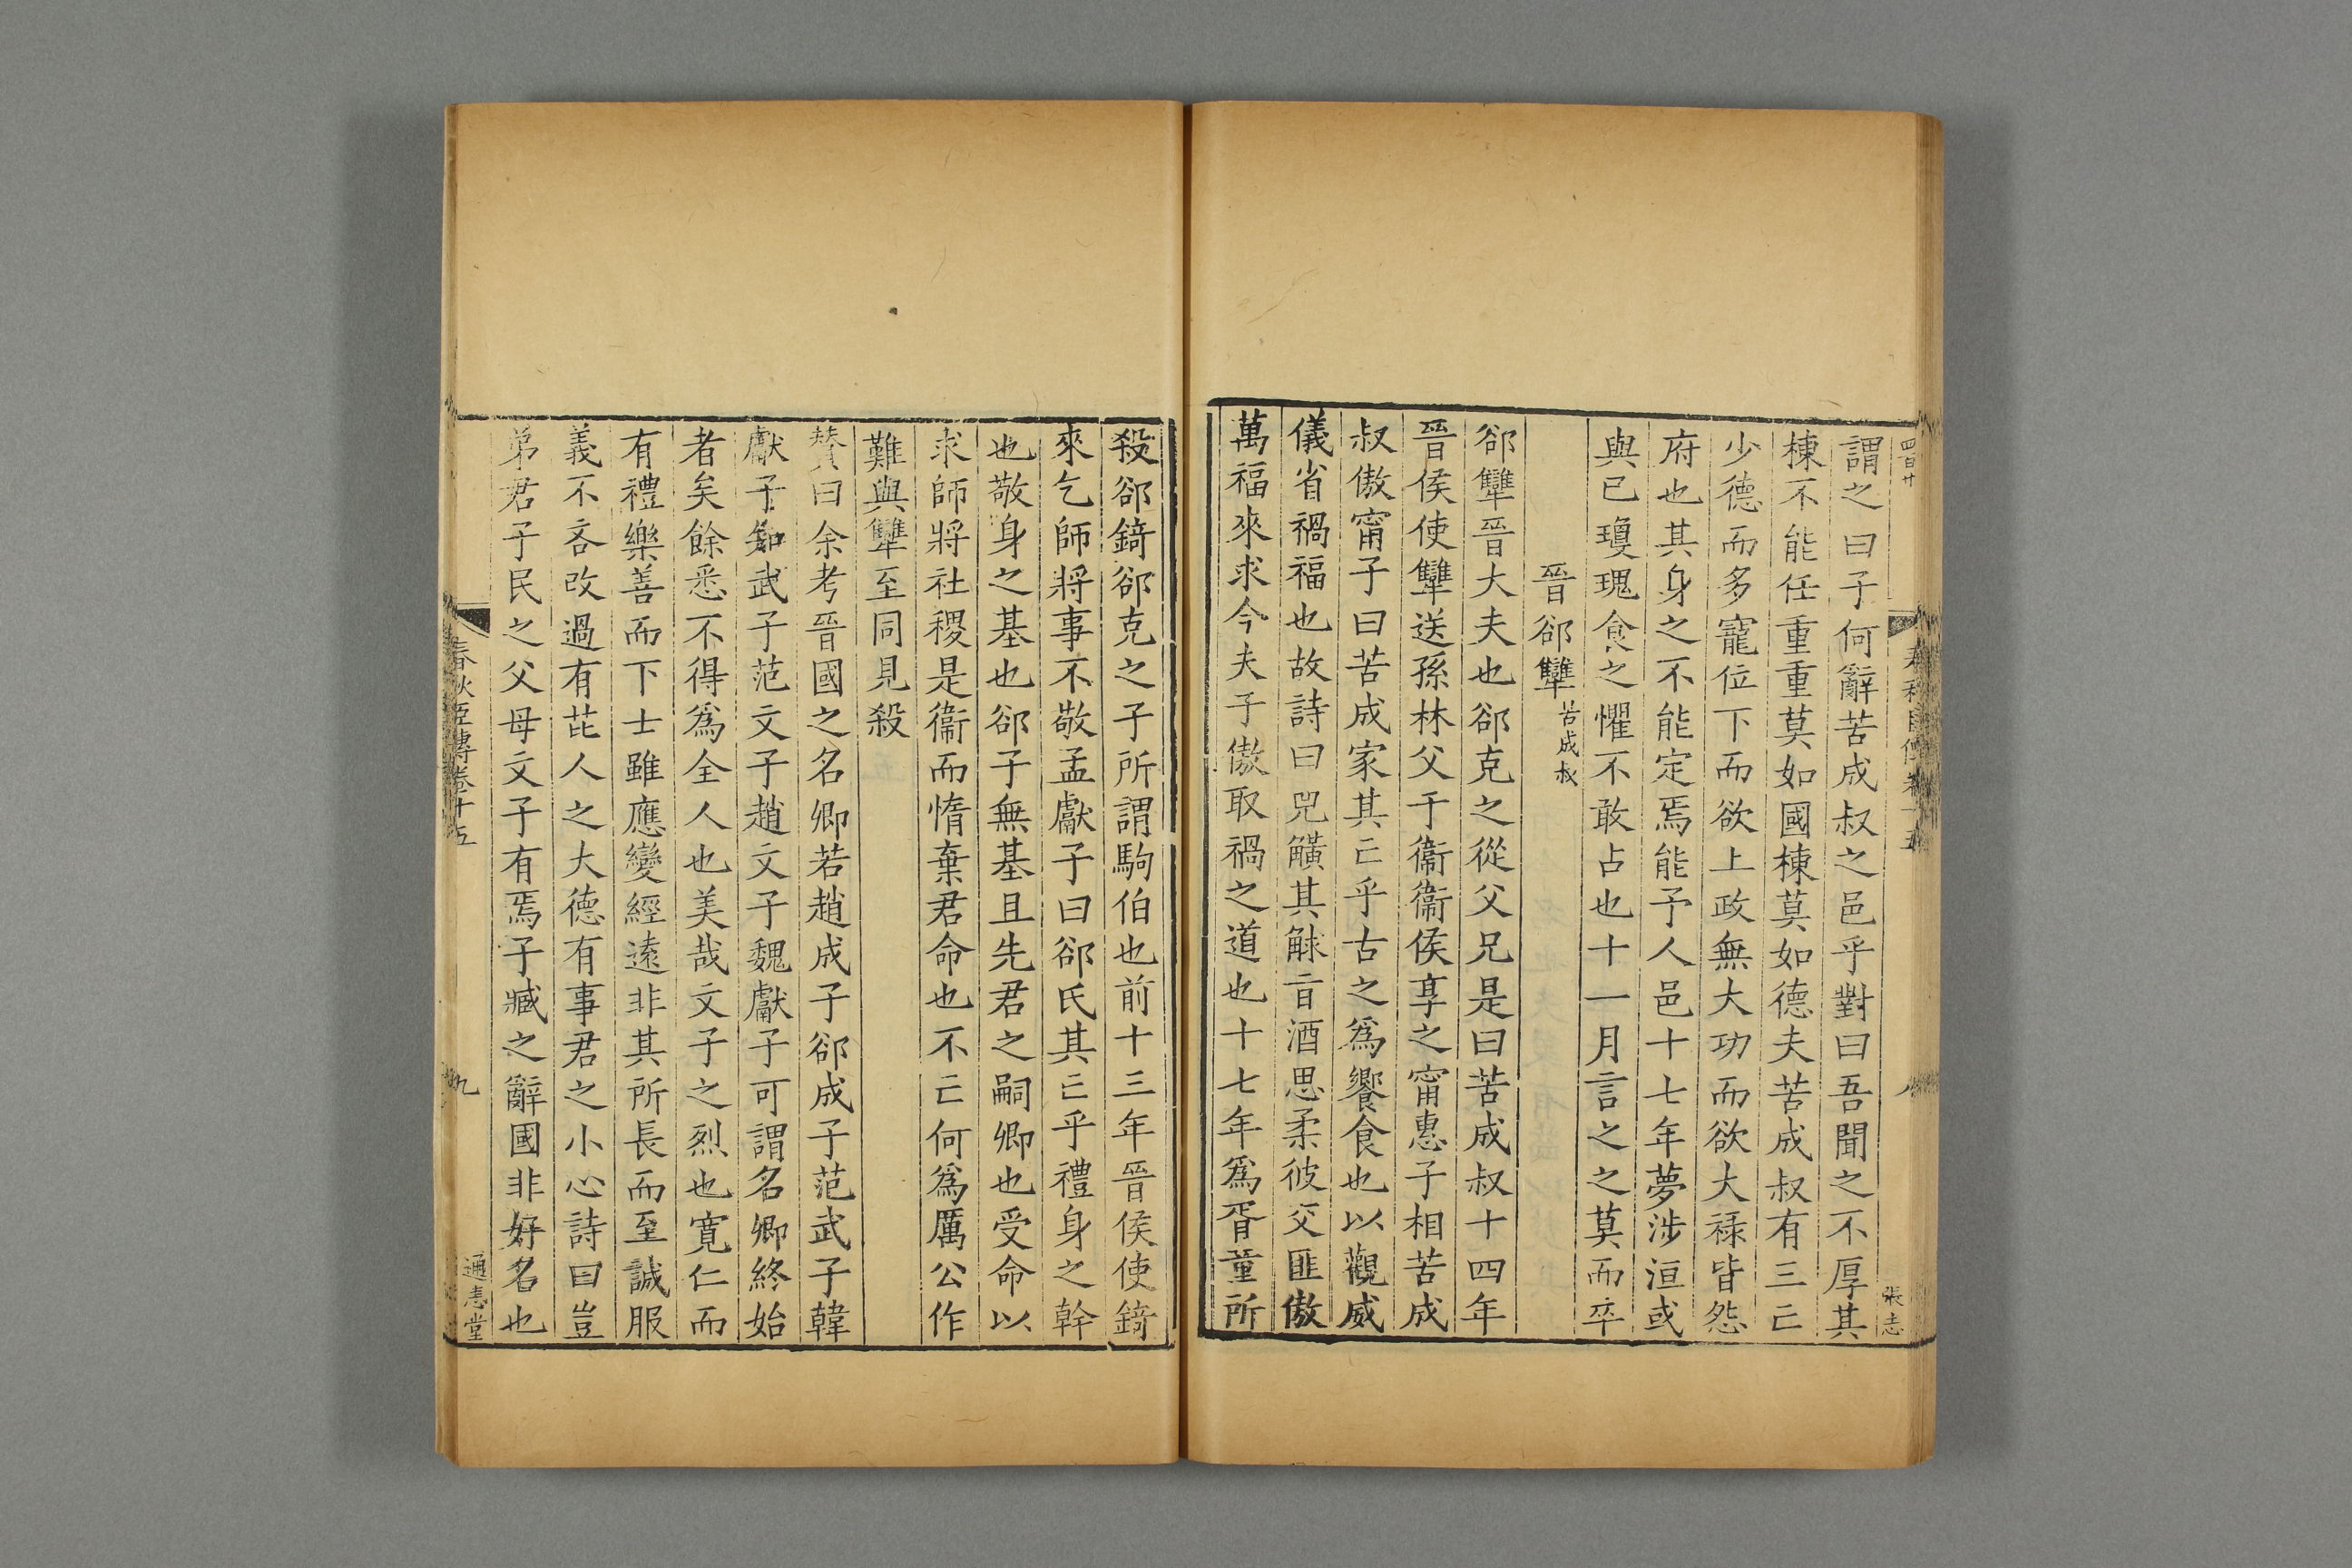 四百廿
謂之曰子何辭苦成叔之邑乎對曰吾聞之不厚其
棟不能任重重莫如國棟莫如德夫苦成叔有三亡
少德而多寵位下而欲上政無大功而欲大禄皆怨
府也其身之不能定焉能予人邑十七年夢涉洹或
與已瓊瑰食之懼不敢占也十一月言之之莫而卒
晉郤犨苦成叔
郤犨晉大夫也郤克之從父兄是曰苦成叔十四年
晉侯使犨送孫林父于衞衞侯享之甯惠子相苦成
叔傲甯子曰苦成家其亡乎古之爲饗食也以觀威
儀省禍福也故詩曰兕觵其觩旨酒思柔彼交匪傲
萬福來求今夫子傲取禍之道也十七年爲胥童所
張志
殺郤錡郤克之子所謂駒伯也前十三年晉侯使錡
來乞師將事不敬孟獻子曰郤氏其亡乎禮身之幹
也敬身之基也郤子無基且先君之嗣卿也受命以
求師將社稷是衞而惰棄君命也不亡何爲厲公作
難與犨至同見殺
贊曰余考晉國之名卿若趙成子郤成子范武子韓
獻子知武子范文子趙文子魏獻子可謂名卿終始
者矣餘悉不得爲全人也美哉文子之烈也寛仁而
有禮樂善而下士雖應變經遠非其所長而至誠服
義不吝改過有芘人之大德有事君之小心詩曰豈
弟君子民之父母文子有焉子臧之辭國非好名也
春秋臣傳卷十五
九
通志堂